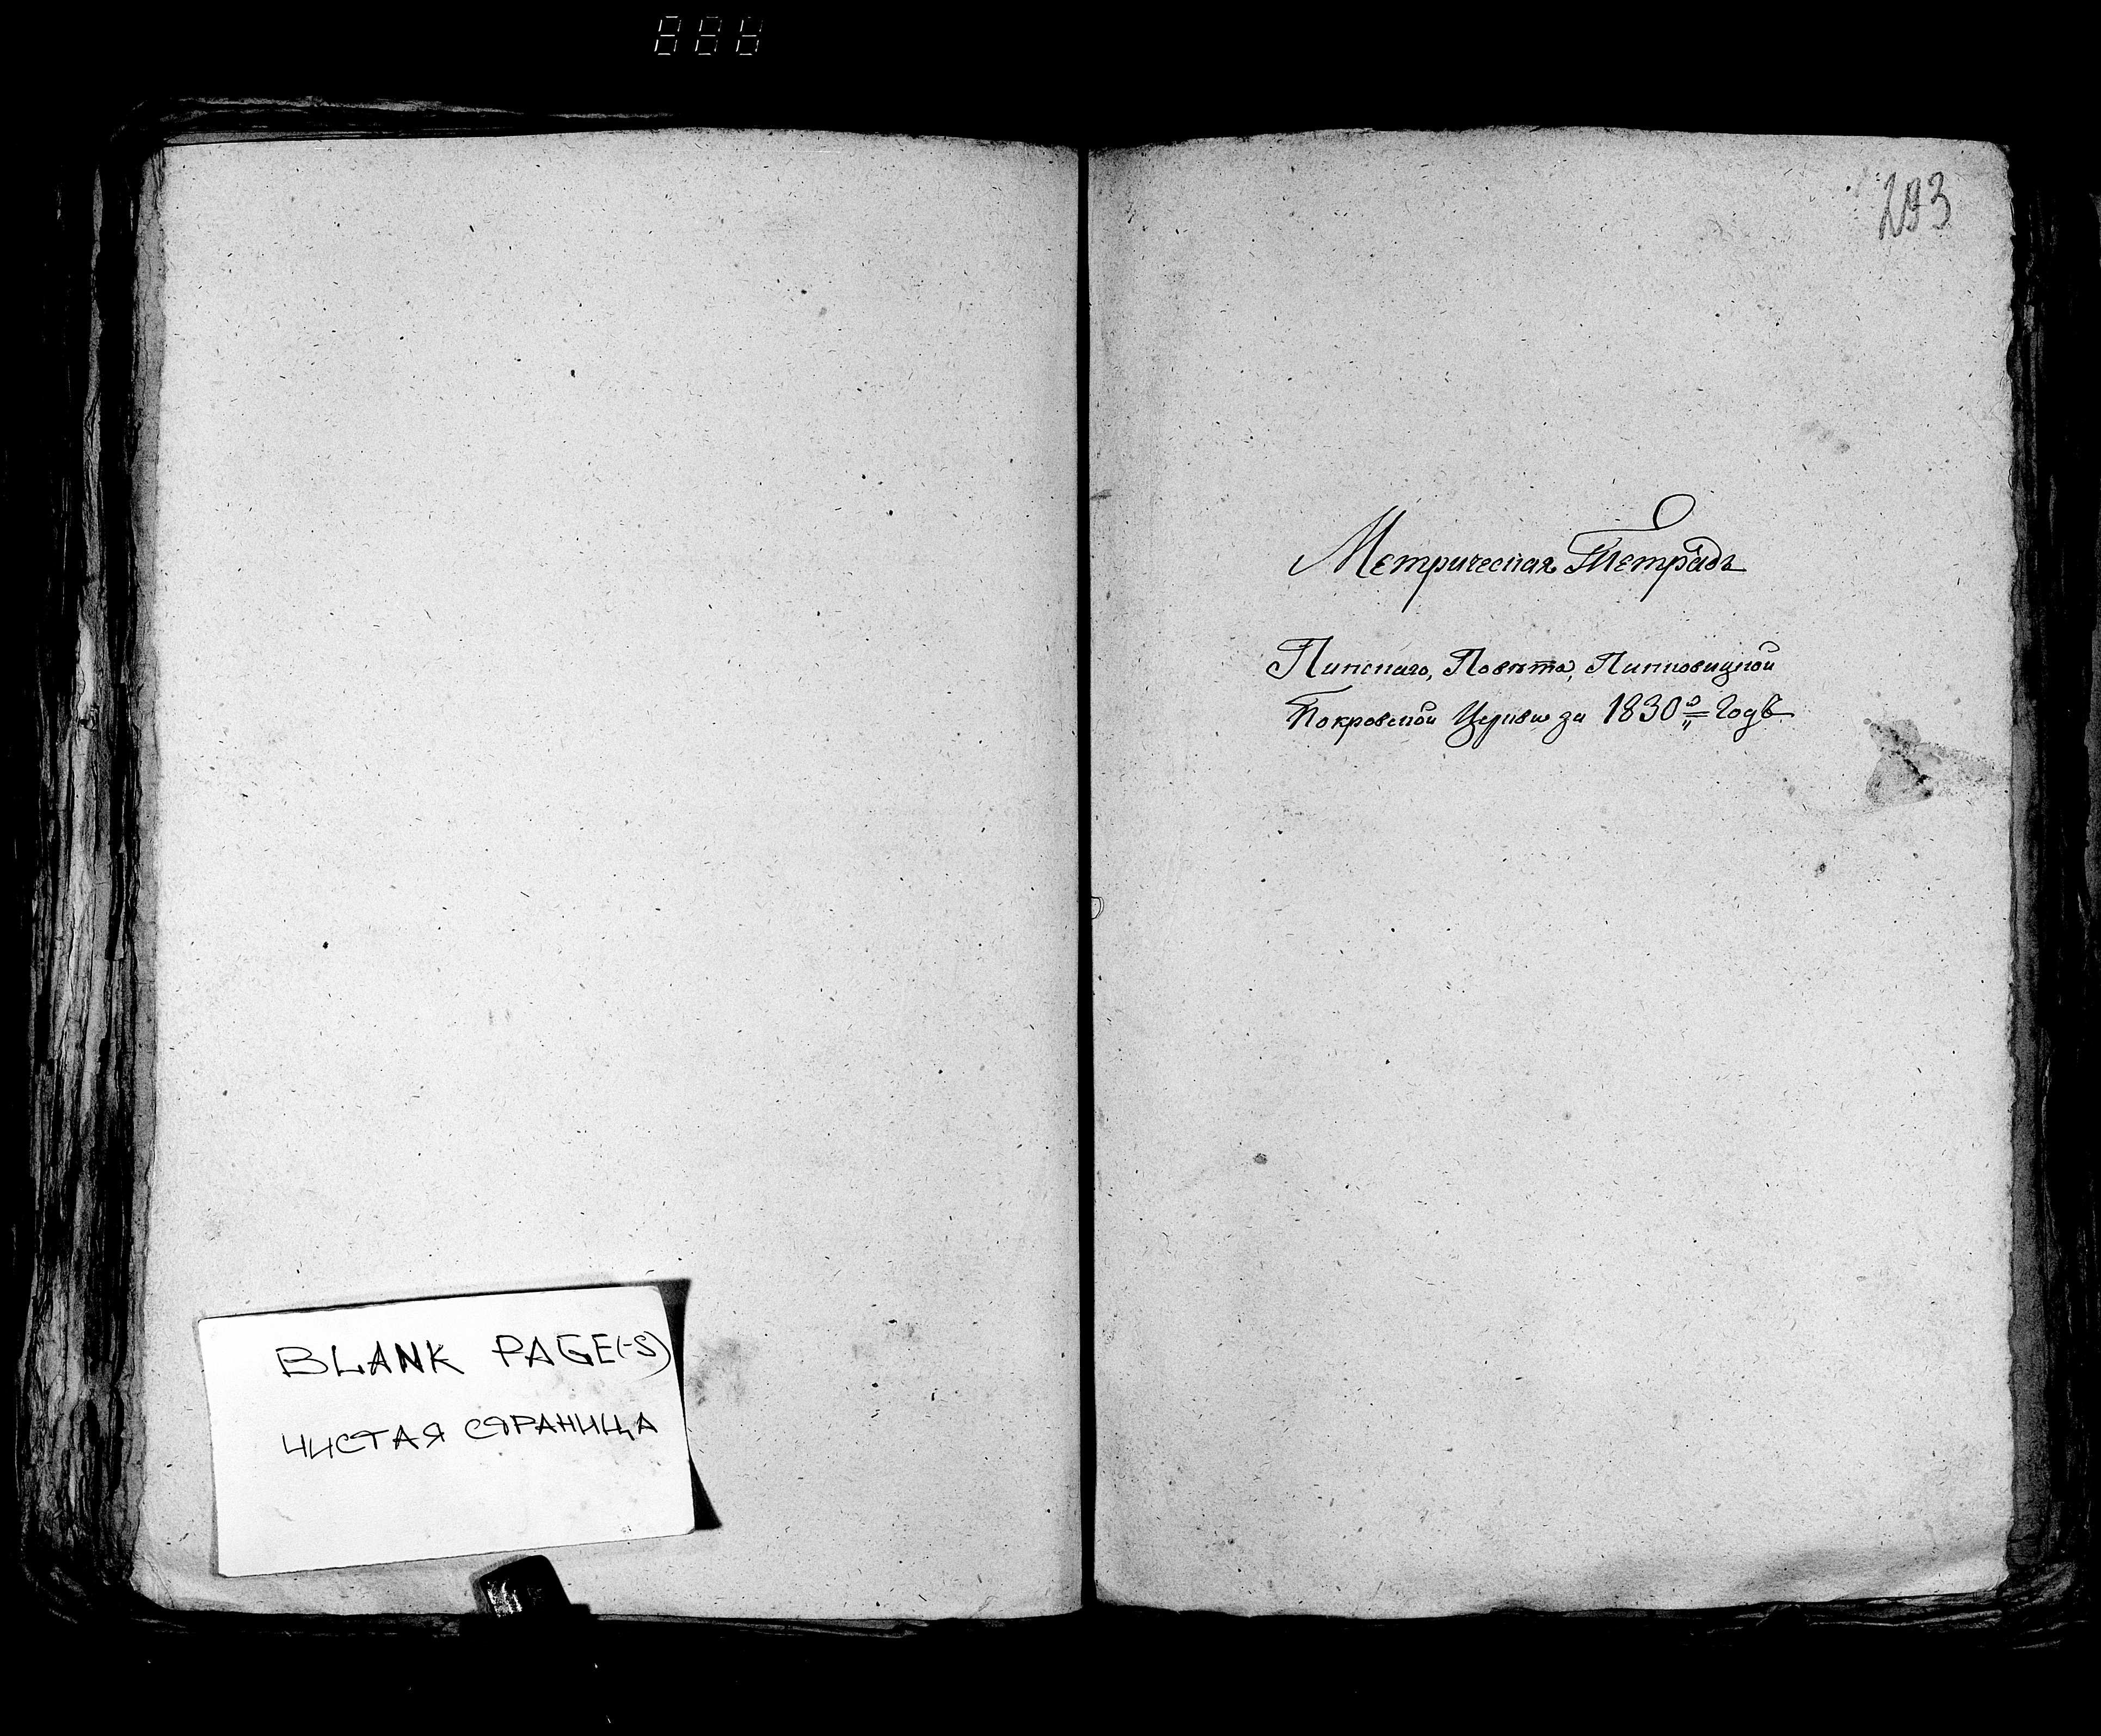 BLANK PAGE(-S)
ЧИСТАЯ СТРАНИЦА
293
Метрическая Тетрадь
Пинскаго, Повѣта, Пинковицкой
Покровской Церкви за 1830й Годъ